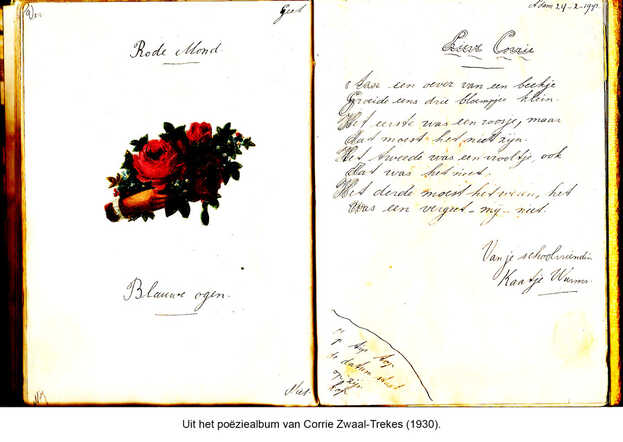 Ver
Geet
Rode Mond
Blauwe ogen.
Mij
Niet
Adam 24-2-19
Lieve Corrie
Aan een oever van een beekje
Groeide eens drie bloempjes klein.
Het eerste was een roosje, maar
dat moest het niet zijn.
Het tweede was een viooltje, ook
dat was het niet.
Het derde moest het wezen, het
Was een verget-mij-niet.
Van je schoolvriendin
Kaatje
Tip tap top
de datum staat
op zijn
kop.
Uit het poëziealbum van Corrie Zwaal-Trekes (1930).